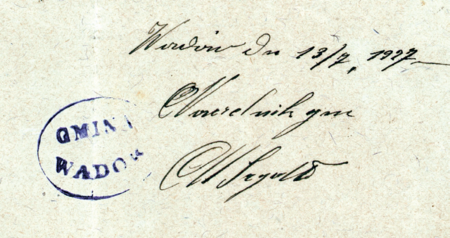 Wadów dn 13/7, 1927
Naczelnik gm
GMINA
WADÓW